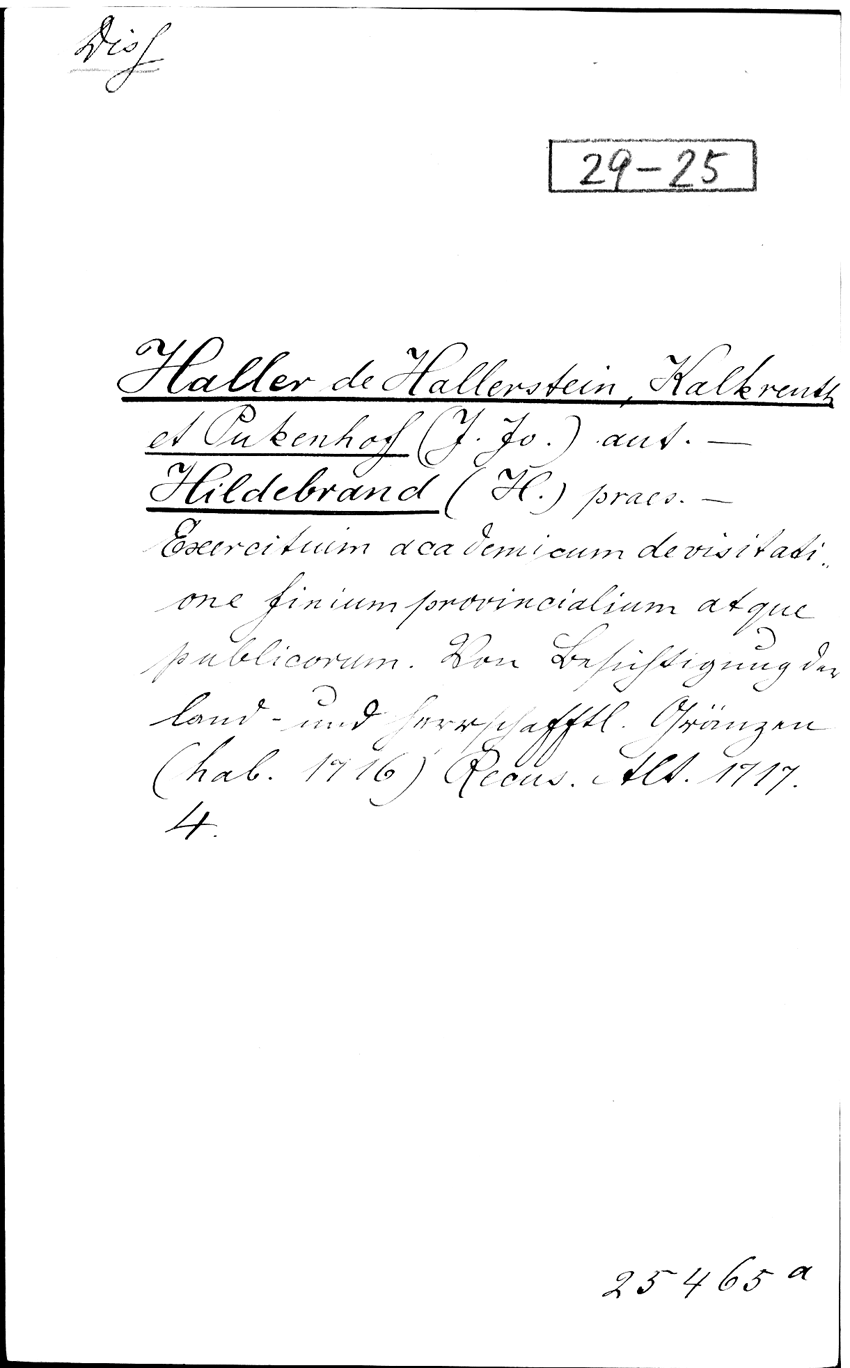 Diss
29-25
Haller de Hallerstein, Kalkreuth
et Pukenhof (J. Jo.) aut. —
Hildebrand (H.) praes. —
Exercituim academicum de visitati„
one finium provincialium atque
publicorum. Von Besichtigung der
land- und herrschafftl. Gränzen
(hab. 1716) Recus. Alt. 1717.
4.
25465 a